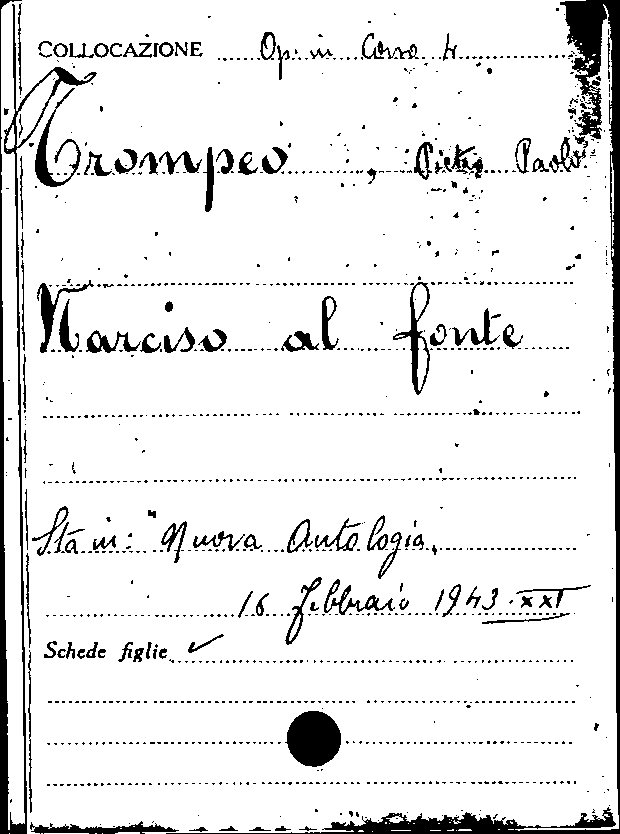 COLLOCAZIONE Op. in Corso 4
Trompeo, Pietro Paolo
Narciso al fonte
Sta in: "Nuova Antologia,
16 Febbraio 1943-XXI
Schede figlie ✓